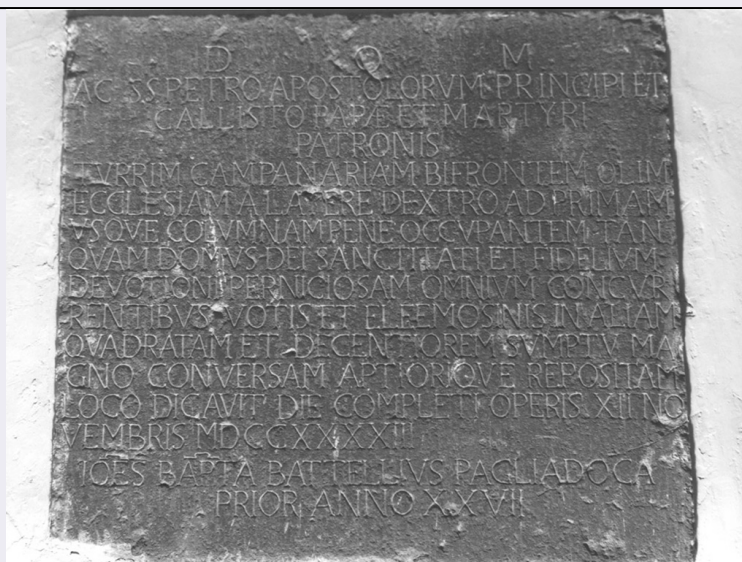 D O M
AC SS PETRO APOSTOLORVM PRINCIPI ET
CALLISTO PAPÆ ET MARTYRI
PATRONIS
TVRRIM CAMPANARIAM BIFRONTEM OLIM
ECCLESIAM A LATERE DEXTRO AD PRIMAM
VSQVE COLVMNAM PENE OCCVPANTEM TAN
QVAM DOMVS DEI SANCTITATI ET FIDELIVM
DEVOTIONI PERNICIOSAM OMNIVM CONCVR
RENTIBVS VOTIS ET ELEEMOSINIS IN ALIAM
QVADRATAM ET DECENTIOREM SVMPTV MA
GNO CONVERSAM APTIORIQVE REPOSITAM
LOCO DICAVIT DIE COMPLETI OPERIS XII NO
VEMBRIS MDCCXXXXIII
IOES BAPTA BATTELLIVS PAGLIADOCA
PRIOR ANNO XXVII